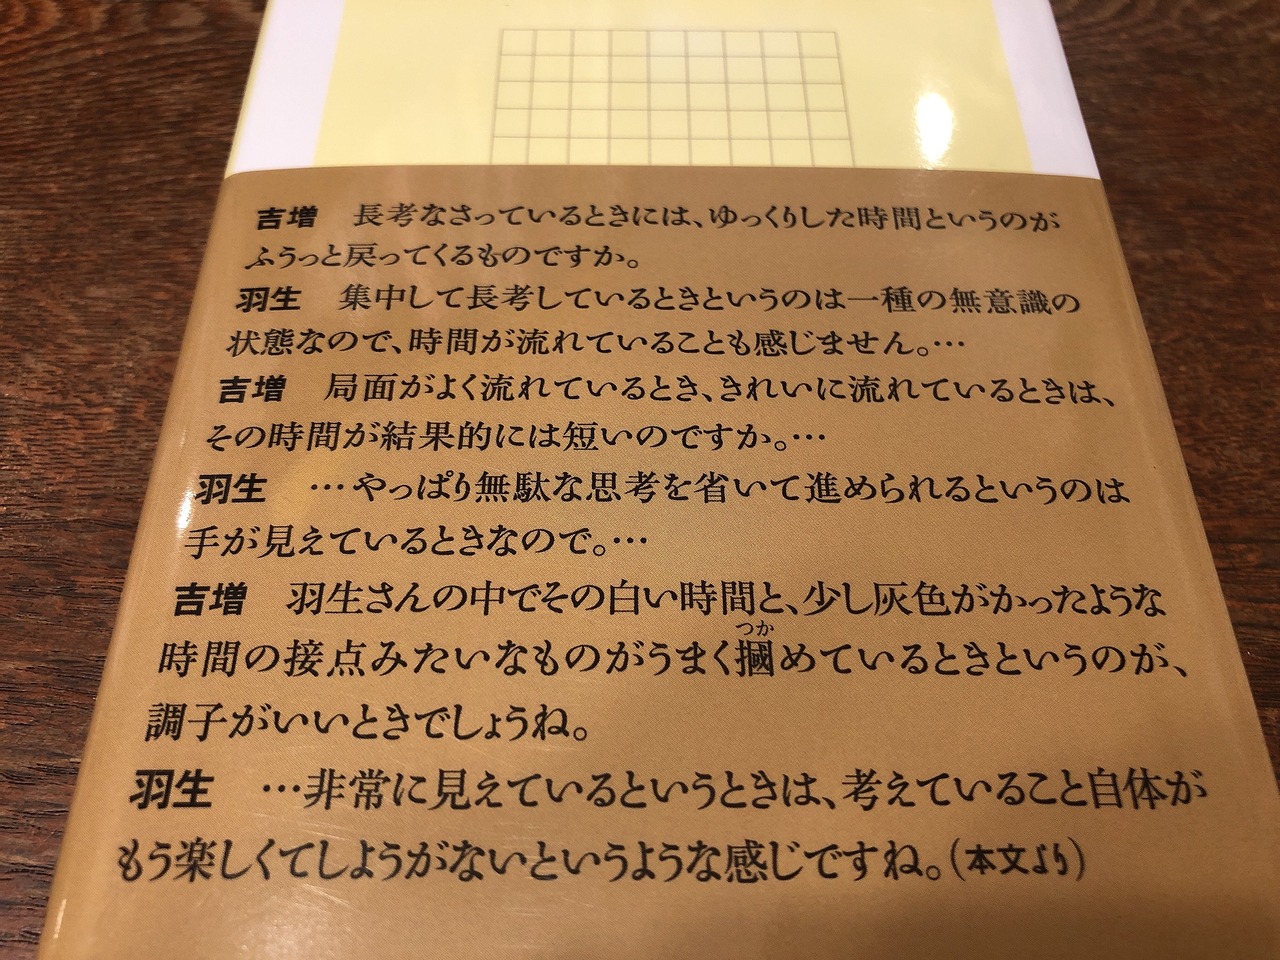 吉増　長考なさっているときには、ゆっくりした時間というのが
ふうっと戻ってくるものですか。
羽生　集中して長考しているときというのは一種の無意識の
状態なので、時間が流れていることも感じません。…
吉増　局面がよく流れているとき、きれいに流れているときは、
その時間が結果的には短いのですか。…
羽生　…やっぱり無駄な思考を省いて進められるというのは
手が見えているときなので。…
吉増　羽生さんの中でその白い時間と、少し灰色がかったような
つか
時間の接点みたいなものがうまく摑めているときというのが、
調子がいいときでしょうね。
羽生　…非常に見えているというときは、考えていること自体が
もう楽しくてしようがないというような感じですね。（本文より）